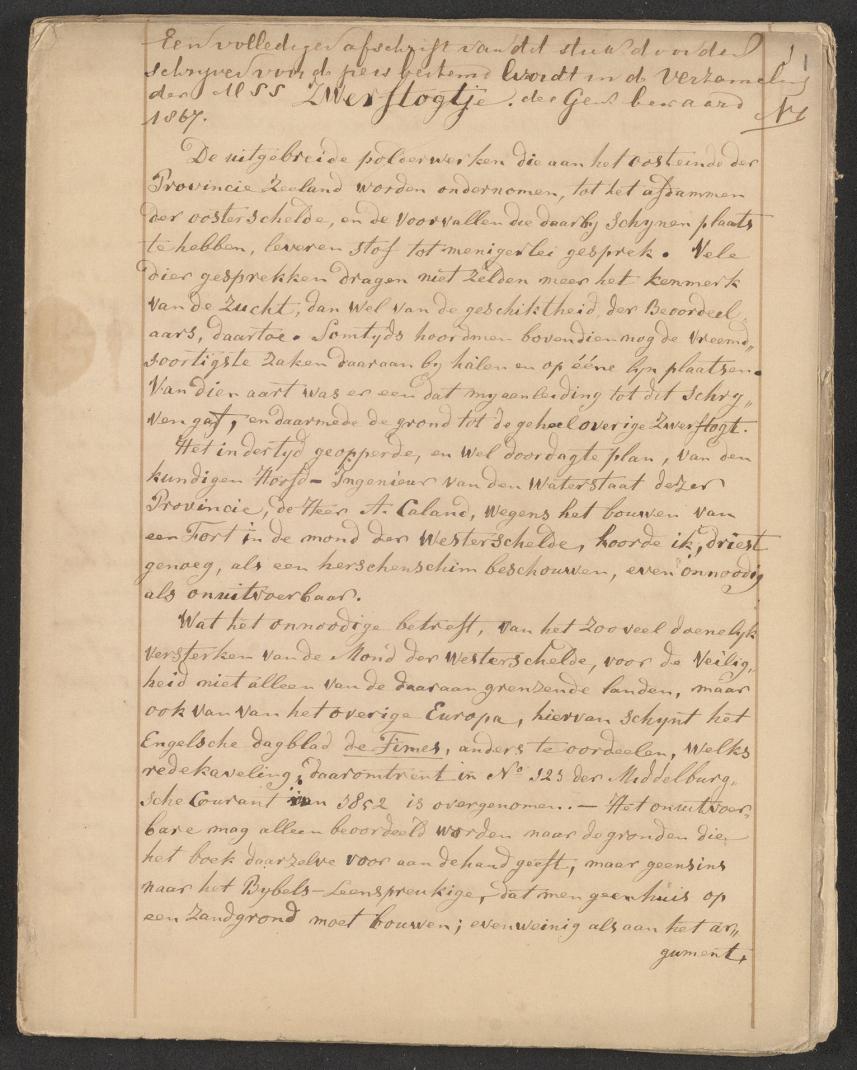 Een volledige afschrift van dit stuk door den
schryver voor de pers bestemd wordt in de verzameling
der MSS Zwerftogtje. der Gen. bewaard
1867.
De uitgebreide polderwerken die aan het oosteinde der
Provincie Zeeland worden ondernomen, tot het afdammen
der oosterschelde, en de voorvallen die daarby schynen plaats
te hebben, leveren stof tot menigerlei gesprek. Vele
dier gesprekken dragen niet zelden meer het kenmerk
van de zucht, dan wel van de geschiktheid, der Beoordeel„
aars, daartoe. Somtyds hoord men bovendien nog de vreemd„
soortigste zaken daaraan by halen en op ééne lyn plaatsen.
Van dien aart was er een dat my aenleiding tot dit schry„
ven gaf, en daarmede de grond tot de geheel overige zwerftogt.
Het in der tyd geopperde, en wel doordagte plan, van den
kundigen Hoofd-Ingenieur van den Waterstaat dezer
Provincie, de Heer A. Caland, wegens het bouwen van
een Fort in de mond der Westerschelde, hoorde ik, driest
genoeg, als een herschenschim beschouwen, even onnoodig
als onuitvoerbaar.
Wat het onnoodige betreft, van het zoo veel doenelyk
versterken van de Mond der Westerschelde, voor de Veilig„
heid niet alleen van de daaraan grenzende landen, maar
ook van van het overige Europa, hiervan schynt het
Engelsche dagblad de Times, anders te oordeelen, welks
redekaveling, daaromtrent in No 123 der Middelburg„
sche Courant van 1852 is overgenomen. — Het onuitvoer„
bare mag alleen beoordeeld worden naar de gronden die
het boek daarzelve voor aan de hand geeft, maar geensins
naar het Bybels-Leenspreukige, dat men geen huis op
een Zandgrond moet bouwen; evenweinig als aan het ar„
gument,